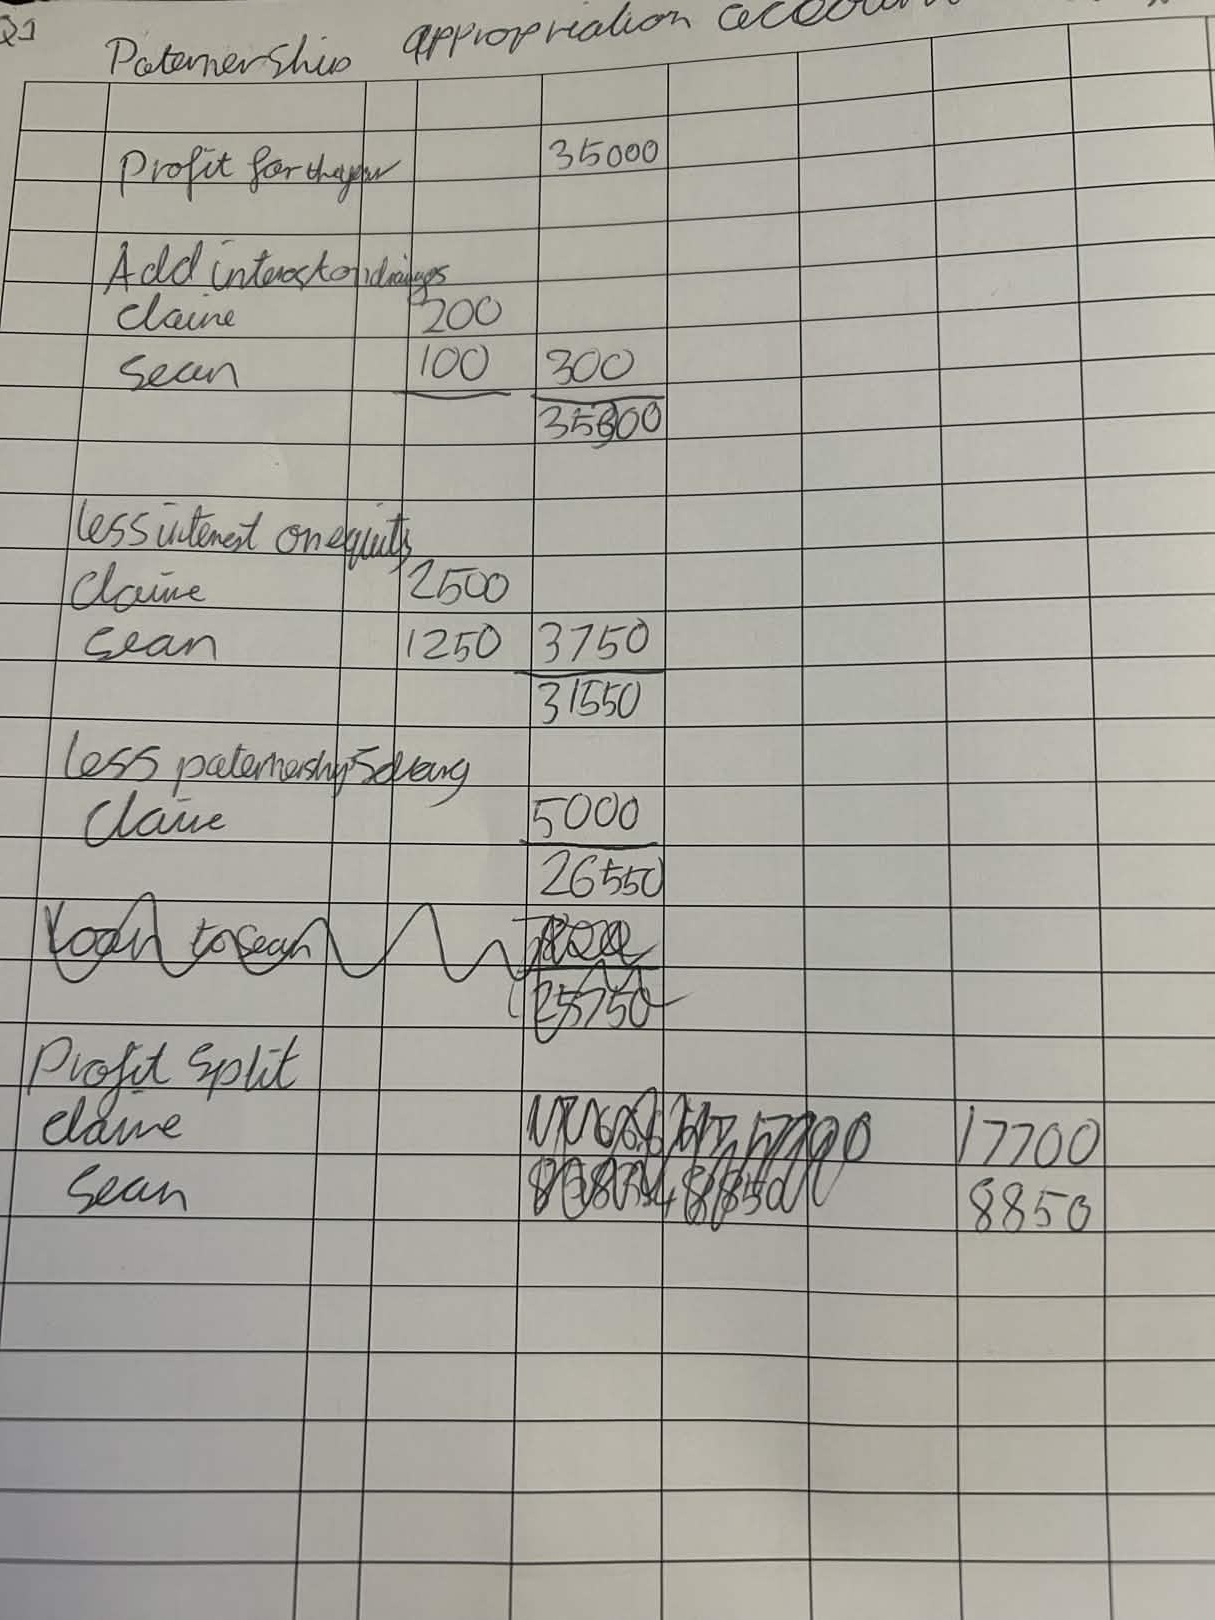 Q1
Paternership appropriation account
Profit for the year 35000
Add interest on drawings
Claire 200
Sean 100 300
35300
less interest on equity
Claire 2500
Sean 1250 3750
31550
less paternership Salary
Claire 5000
26550
Loan to Sean
25750
Profit Split
Claire 17700
Sean 8850 8850